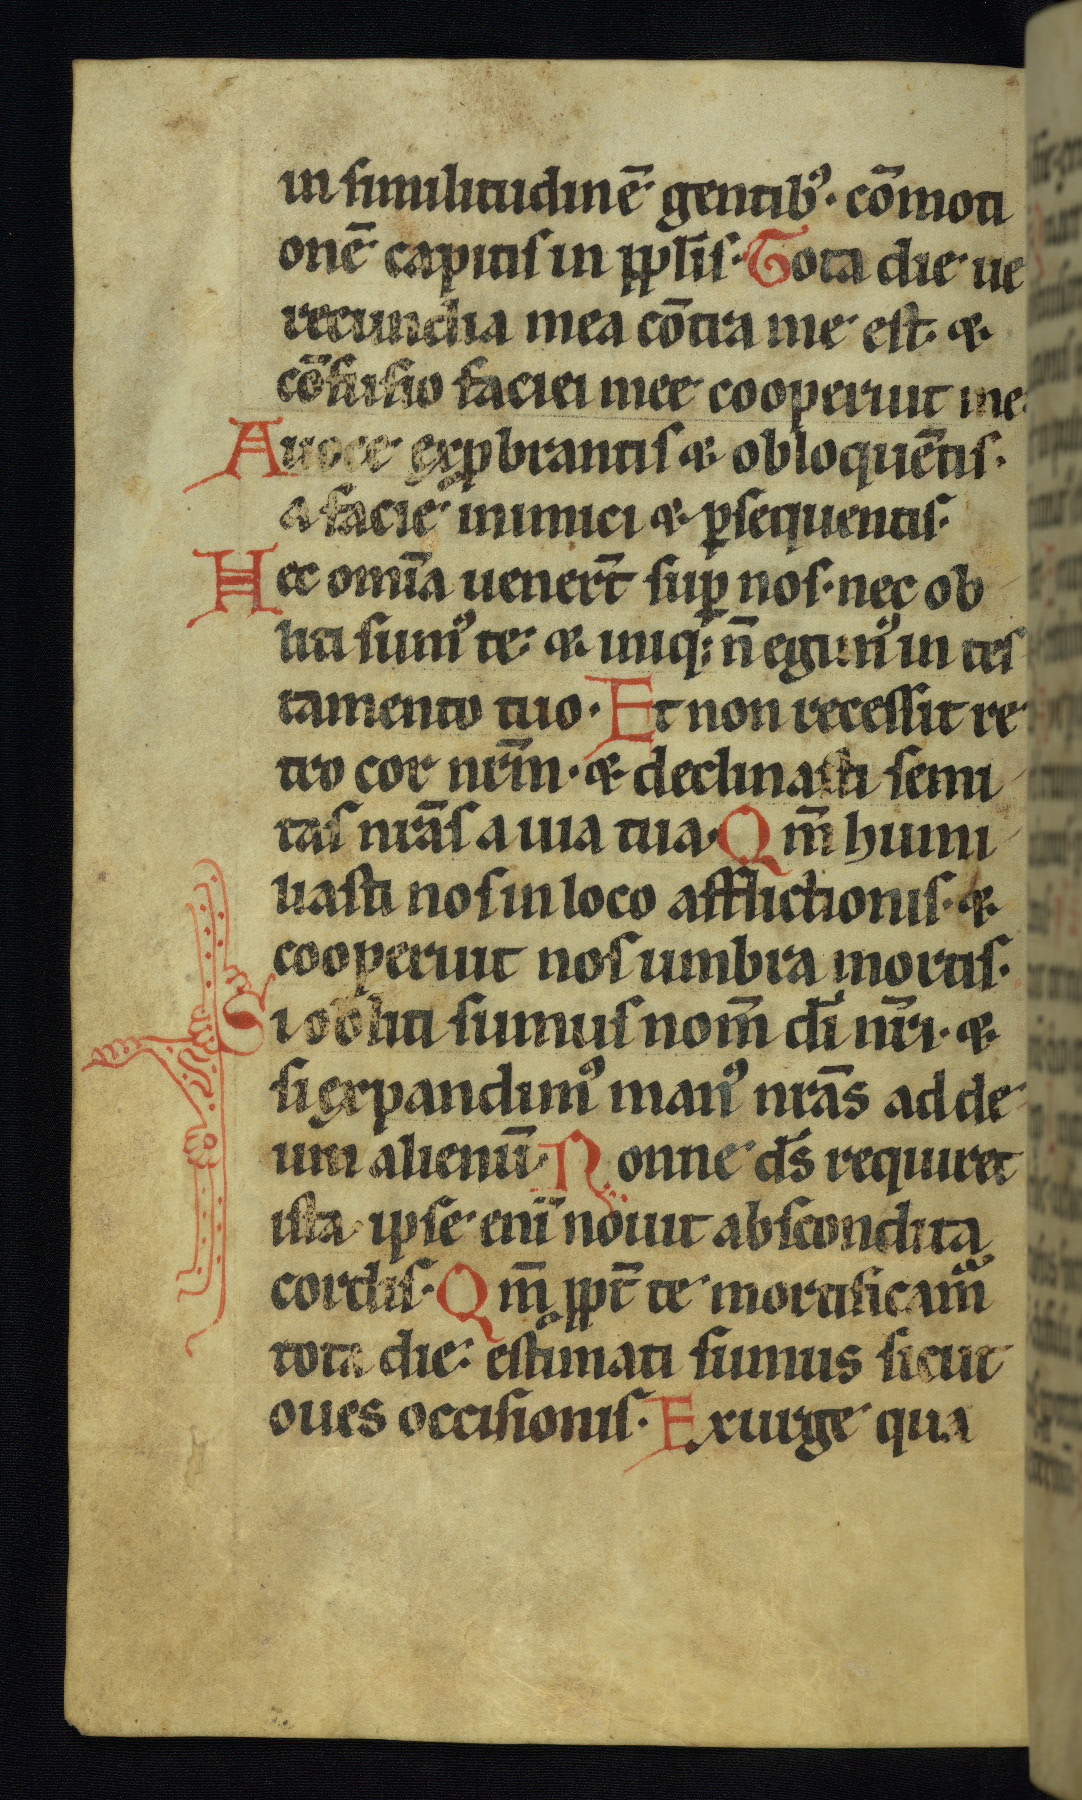 in similitudinē gentibꝰ· cōmoti
onē capitis in pplīs· Tota die ue
recundia mea cōtra me est· &
cōfusio faciei mee cooperuit me·
A uoce exp̄brantis & obloquētis·
a facie inimici & ꝑsequentis·
Hec om̄ia uenerūt suꝑ nos· nec ob
liti sumꝰ te: & iniq; n̄ egimꝰ in tes
tamento tuo· Et non recessit re
tro cor nr̄m· & declinasti semi
tas nr̄as a uia tua· Qm̄ humi
liasti nos in loco afflictionis· &
cooperuit nos umbra mortis·
Si obliti sumus nom̄ dī nr̄i· &
si expandimꝰ manꝰ nr̄as ad de
um alienū· Nonne ds̄ requiret
ista· ipse enī nouit abscondita
cordis· Qm̄ ppt̄ te mortificam̄
tota die: estimati sumus sicut
oues occisionis· Exurge qua